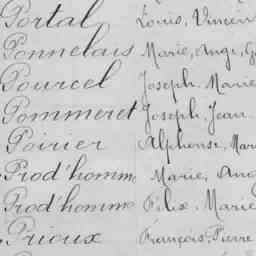 Portal Louis, Vincen
Ponnelais Marie, Ange, G
Pourcel Joseph, Marie
Pommeret Joseph, Jean
Poirier Alphonse, Mar
Prod'homme Marie, Ang
Prod'homme Félix, Marie
Prioux François, Pierre